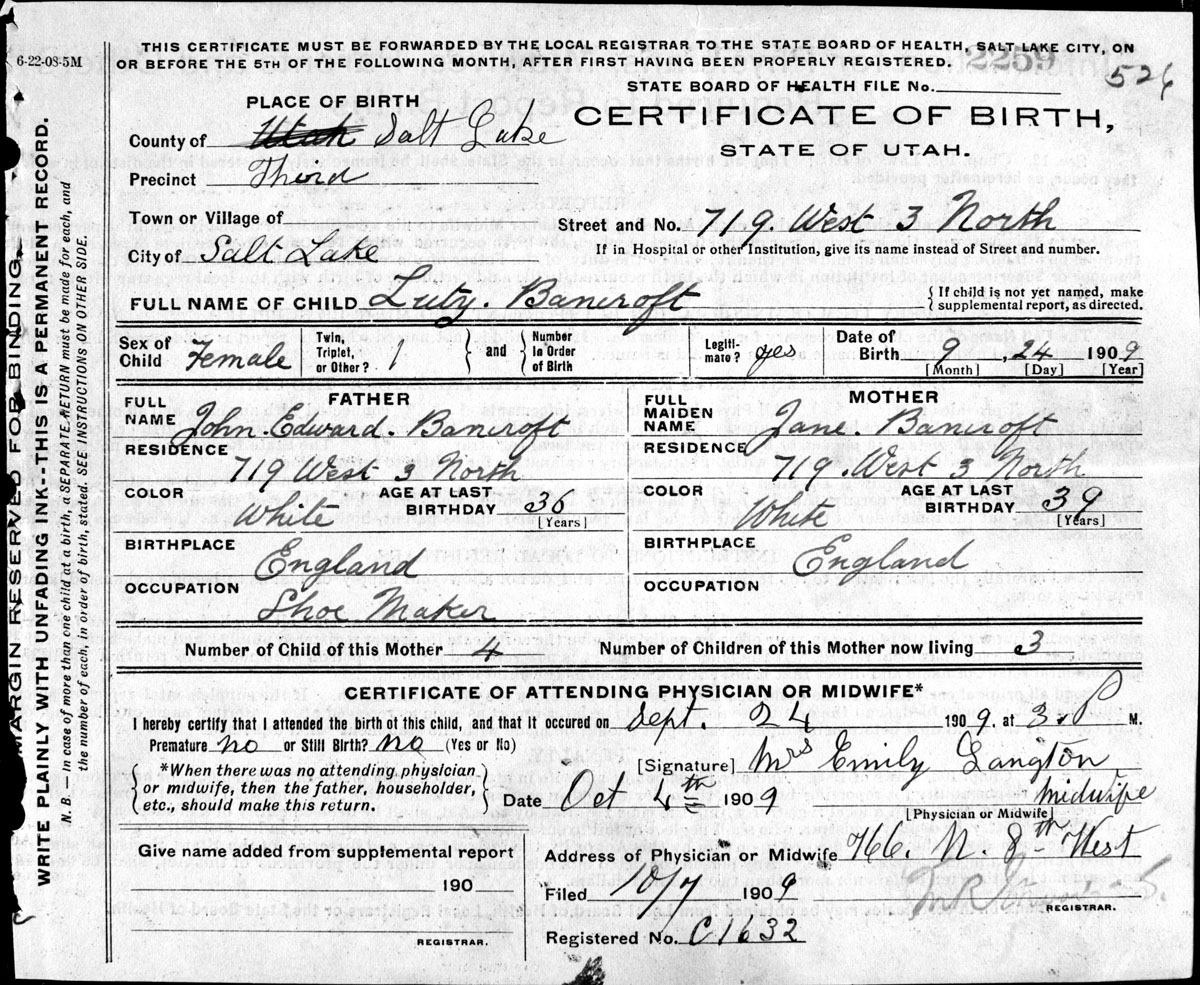 6-22-08-5M
THIS CERTIFICATE MUST BE FORWARDED BY THE LOCAL REGISTRAR TO THE STATE BOARD OF HEALTH, SALT LAKE CITY, ON
OR BEFORE THE 5TH OF THE FOLLOWING MONTH, AFTER FIRST HAVING BEEN PROPERLY REGISTERED.
2259
526
STATE BOARD OF HEALTH FILE No.
PLACE OF BIRTH
CERTIFICATE OF BIRTH,
STATE OF UTAH.
County of Utah Salt Lake
Precinct Third
Town or Village of
Street and No. 719 West 3 North
[If in Hospital or other Institution, give its name instead of Street and number.]
City of Salt Lake
FULL NAME OF CHILD Luty. Bancroft
{If child is not yet named, make
supplemental report, as directed.
Sex of Child Female
Twin, Triplet, or Other? 1
and
Number in Order of Birth
Legitimate? yes
Date of Birth 9, 24 1909
[Month] [Day] [Year]
FATHER
FULL NAME John. Edward. Bancroft
RESIDENCE
719 West 3 North
COLOR White
AGE AT LAST BIRTHDAY 36
[Years]
BIRTHPLACE
England
OCCUPATION
Shoe Maker
MOTHER
FULL MAIDEN NAME Jane. Bancroft
RESIDENCE
719. West 3 North
COLOR White
AGE AT LAST BIRTHDAY 39
[Years]
BIRTHPLACE
England
OCCUPATION
Number of Child of this Mother 4
Number of Children of this Mother now living 3
CERTIFICATE OF ATTENDING PHYSICIAN OR MIDWIFE*
I hereby certify that I attended the birth of this child, and that it occured on Sept. 24 1909. at 3. P M.
Premature no or Still Birth? no (Yes or No)
[Signature] Mrs Emily Langton
*When there was no attending physician
or midwife, then the father, householder,
etc., should make this return.
Date Oct 4th 1909
midwife
[Physician or Midwife]
Give name added from supplemental report
190
REGISTRAR.
Address of Physician or Midwife 766. N. 8th West
Filed 10/7 1909
REGISTRAR.
Registered No. C1632
MARGIN RESERVED FOR BINDING.
WRITE PLAINLY WITH UNFADING INK--THIS IS A PERMANENT RECORD.
N. B.—In case of more than one child at a birth, a SEPARATE RETURN must be made for each, and
the number of each, in order of birth, stated. SEE INSTRUCTIONS ON OTHER SIDE.